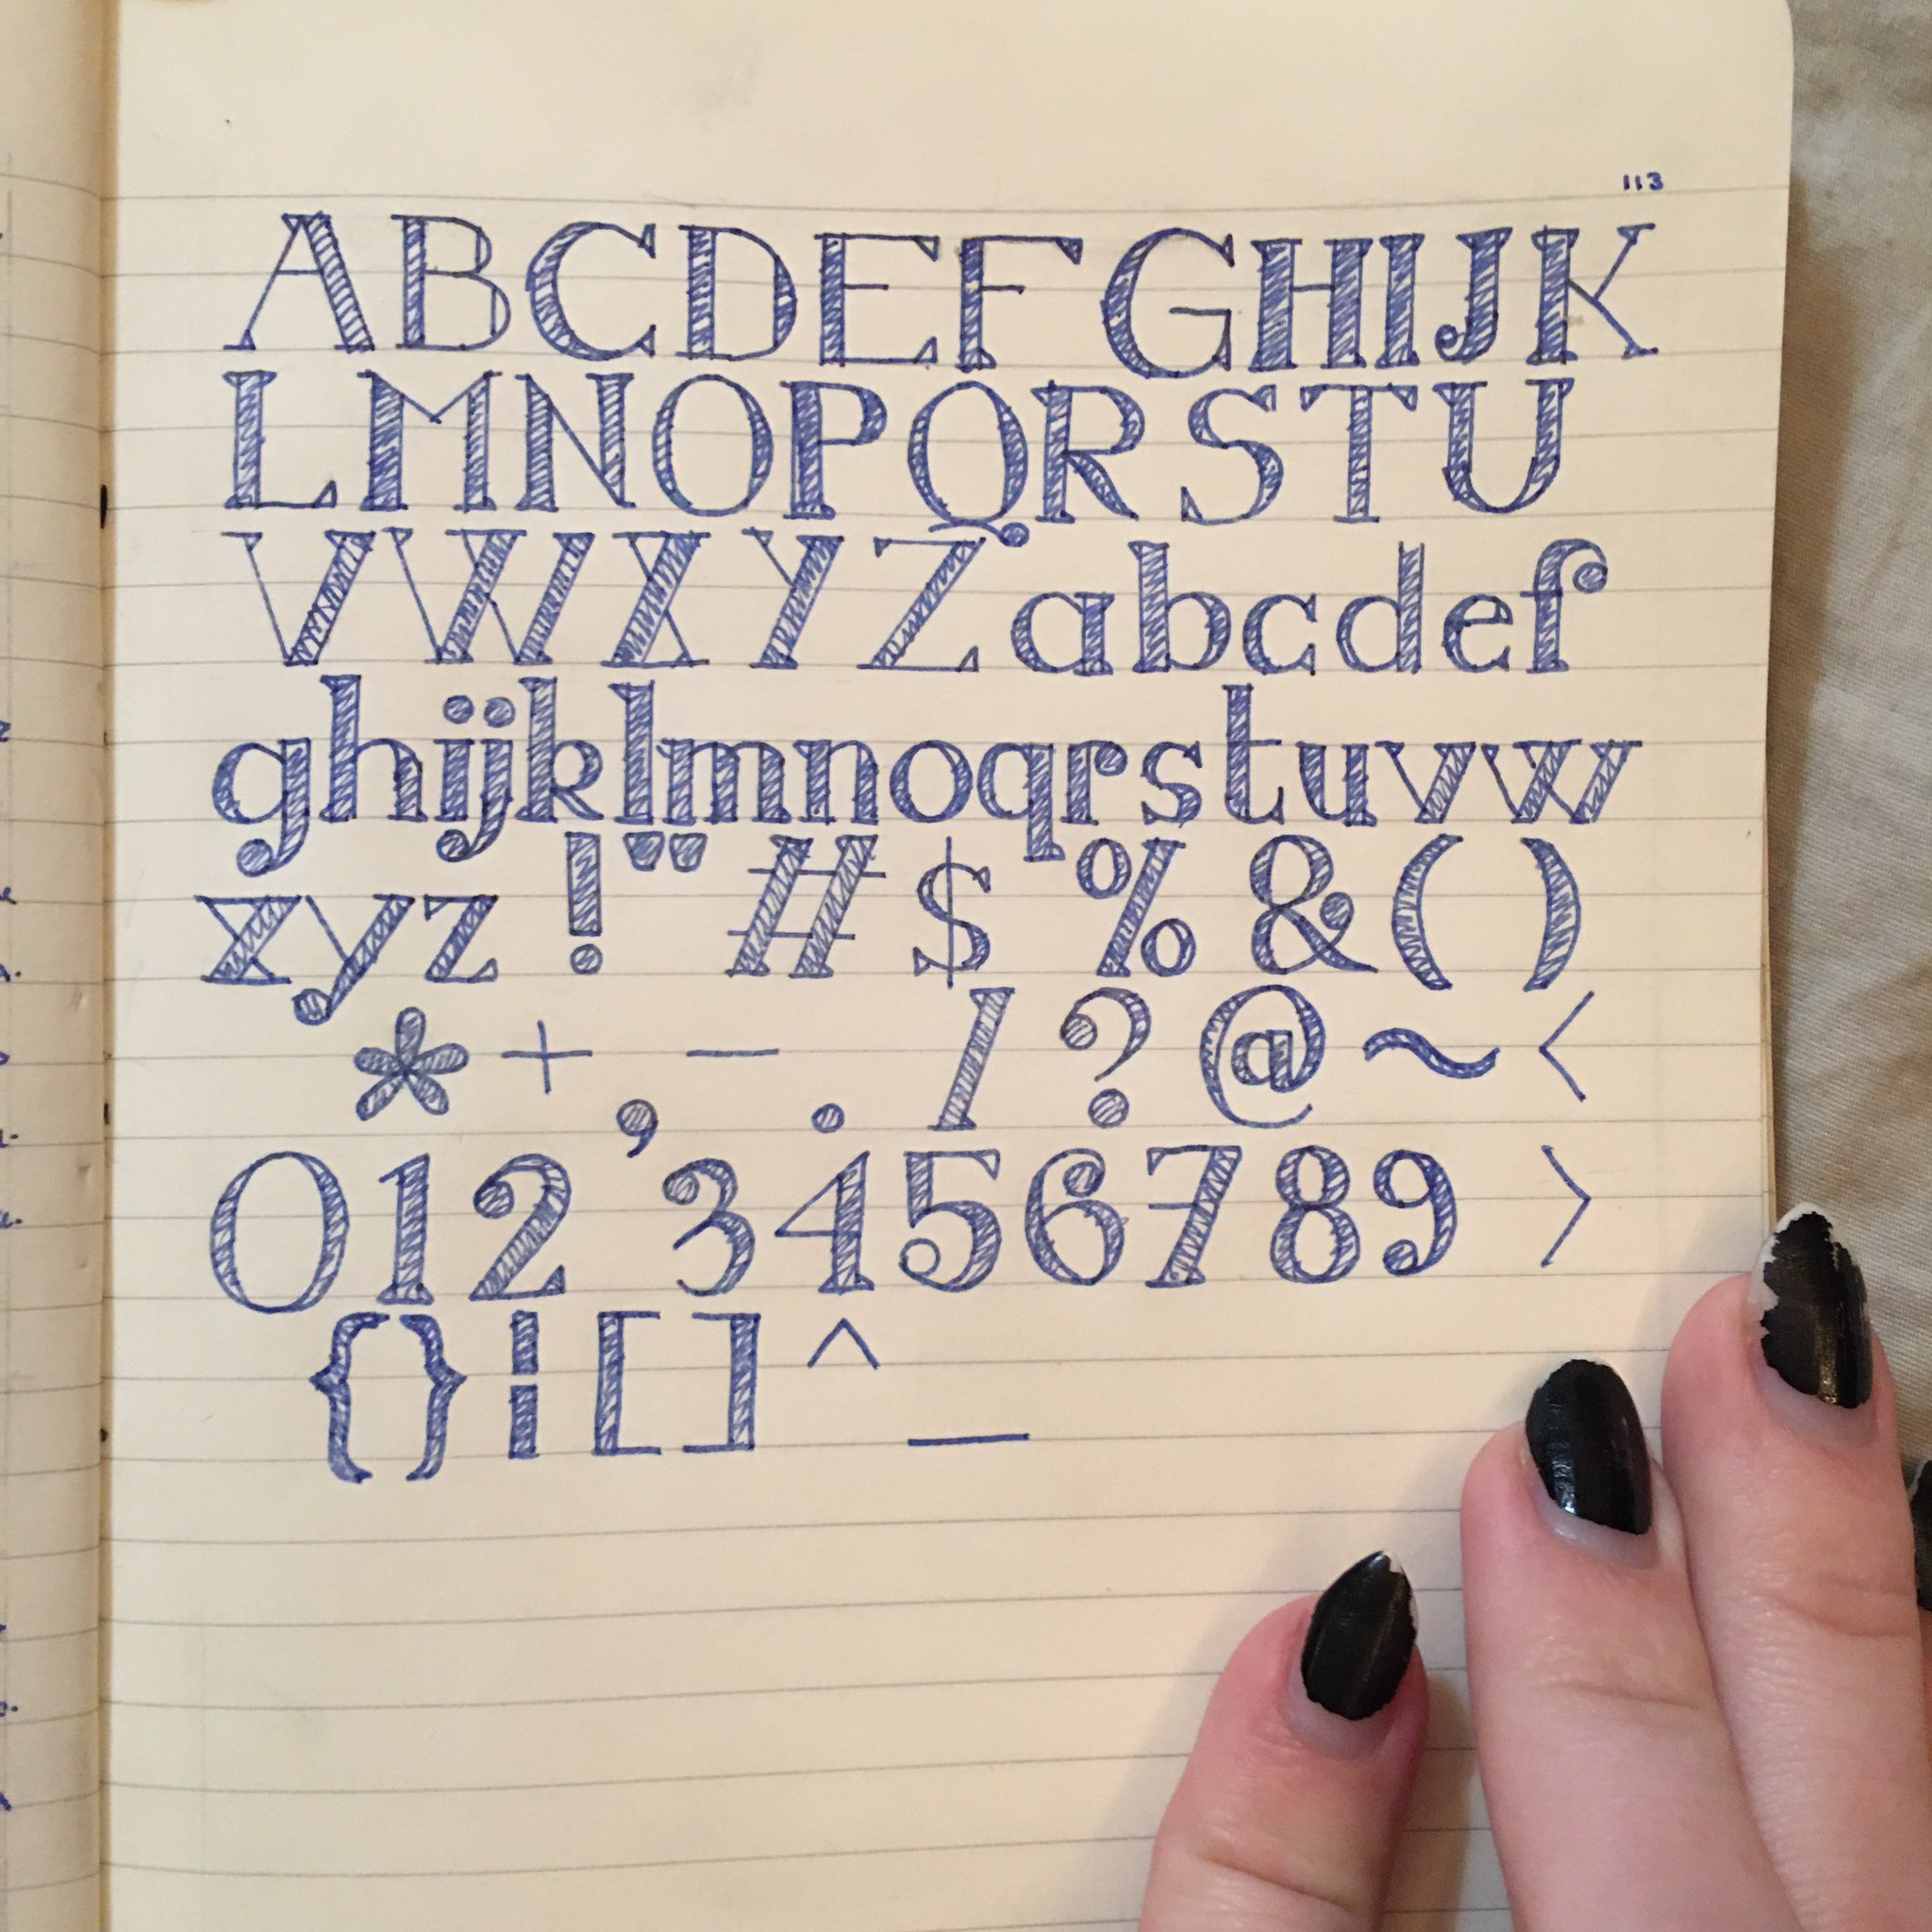 113
ABCDEFGHIJK
LMNOPQRSTU
VWXYZabcdef
ghijklmnoqrstuvw
xyz!"#$%&()
*+,-./?@~<
0123456789>
{}¦[]^_